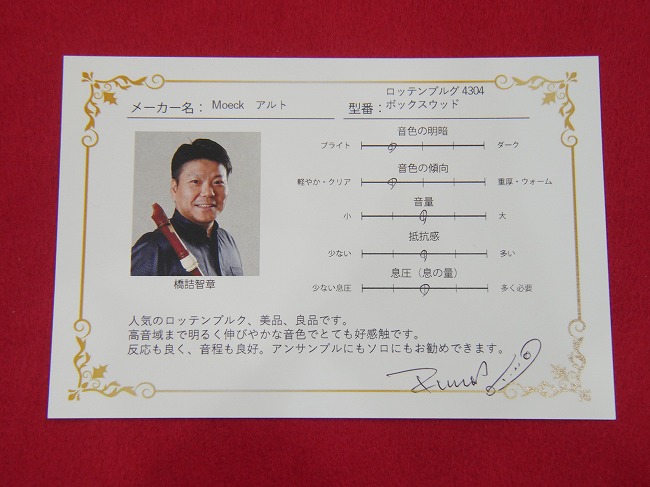 メーカー名： Moeck アルト
型番：ロッテンブルグ 4304
ボックスウッド
音色の明暗
ブライト ダーク
音色の傾向
軽やか・クリア 重厚・ウォーム
音量
小 大
抵抗感
少ない 多い
息圧（息の量）
少ない息圧 多く必要
橋詰智章
人気のロッテンブルク、美品、良品です。
高音域まで明るく伸びやかな音色でとても好感触です。
反応も良く、音程も良好。アンサンブルにもソロにもお勧めできます。